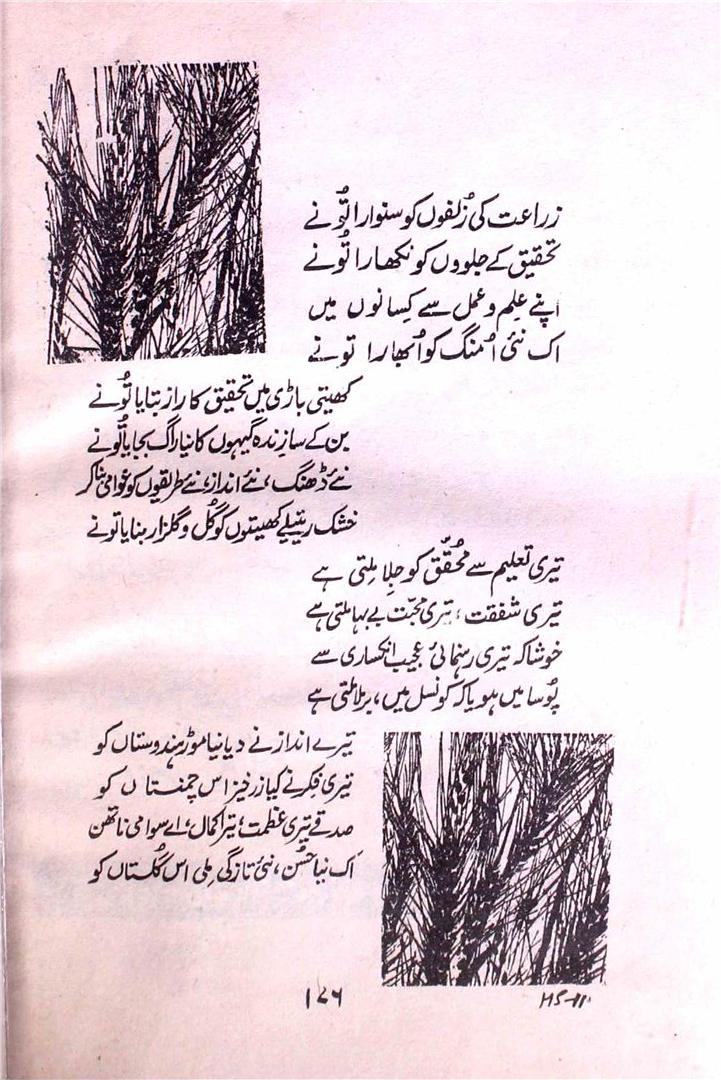 زراعت کی زُلفوں کو سنوارا تُو نے
تحقیق کے جلووں کو نکھارا تُو نے
اپنے علم و عمل سے کِسانوں میں
اک نئی اُمنگ کو اُبھارا تو نے
کھیتی باڑی میں تحقیق کا راز بتایا تُو نے
بن کے سازندہ گیہوں کا نیا راگ بجایا تُو نے
نئے ڈھنگ، نئے انداز، نئے طریقوں کو عوامی بنا کر
خشک ریتیلے کھیتوں کو گُل و گلزار بنایا تو نے
تیری تعلیم سے محُقّق کو جِلا مِلتی ہے
تیری شفقت، تیری محبّت بے بہا ملتی ہے
خوشا کہ تیری رہنمائی عجیب انکساری سے
پُوسا میں ہو یا کہ کونسل میں، برملا ملتی ہے
تیرے انداز نے دیا نیا موڑ ہندوستاں کو
تیری فِکر نے کیا زرخیز اس چمنستاں کو
صدقے تیری عظمت، تیرا کمال، اے سوامی ناتھن
اک نیا حُسن، نئی تازگی مِلی اس گُلستاں کو
۱۷۶
HS-11